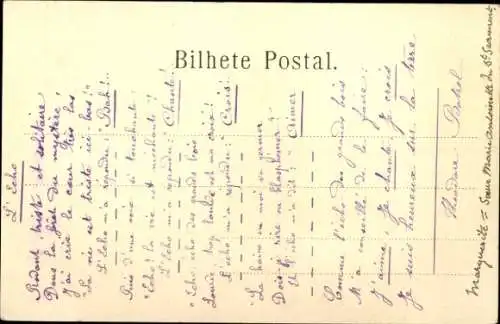 Bilhete Postal.
L'Echo
Rodant triste et solitaire
Dans la forêt du mystère
J'ai crié le cœur très las
La vie est triste ici-bas!
L'Echo m'a répondu: "Bah!"
Puis d'une voix si touchante
"Echo! la vie est méchante!
L'Echo m'a répondu: "Chante!"
"Echo, écho des grands bois
Lourde, trop lourde est ma croix!
L'écho m'a répondu: "Crois!"
"La haine en moi va germer
Dois-je rire ou blasphémer?
Et l'écho m'a dit: "Aimer"
Comme l'écho des grands bois
M'a conseillé de le faire:
J'aime, je chante, je crois
Je suis heureux sur la terre
Théodore Botrel
Marguerite = Sœur Marie Antoinette du St Serment